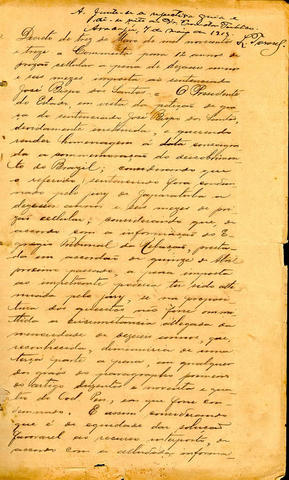 A. Junte-se a respectiva guia e
Aracajú, 7 de maio de 1913.
Decreto de tres de Maio de mil novecentos
e treze Commuta em 12 annos de
prisão cellular a pena de dezeseis annos
e seis mezes imposta ao sentenciado
José Bispo dos Santos. O Presidente
do Estado, em vista da petição de gra
ça do sentenciado José Bispo dos Santos,
devidamente instruida, e querendo
render homenagem á data consagra
da a commemoração do descobrimen
to do Brazil; considerando que
o referido sentenciado fora condem
nado pelo jury de Japaratuba a
dezeseis annos e seis mezes de pri
zão cellular; considerando que, de
accordo com a informação do E
gregio Tribunal da Relação, presta
da em accordão de quinze de Abril
proximo passado, a pena imposta
ao impetrante poderia ter sido alte
rada pelo jury, se na propositura
dos quesitos não fosse ommi
ttida a circumstancia allegada da
menoridade de dezeseis annos, que,
reconhecida, diminuiria de uma
terça parte a pena, em qualquer
dos gráos do paragrapho primeiro
do artigo duzentos e noventa e qua
tro do Cod. Pen., em que fora con
demnado. E assim considerando
que é de equidade dar solução
favoravel ao recurso interposto, de
accordo com a alludida informa